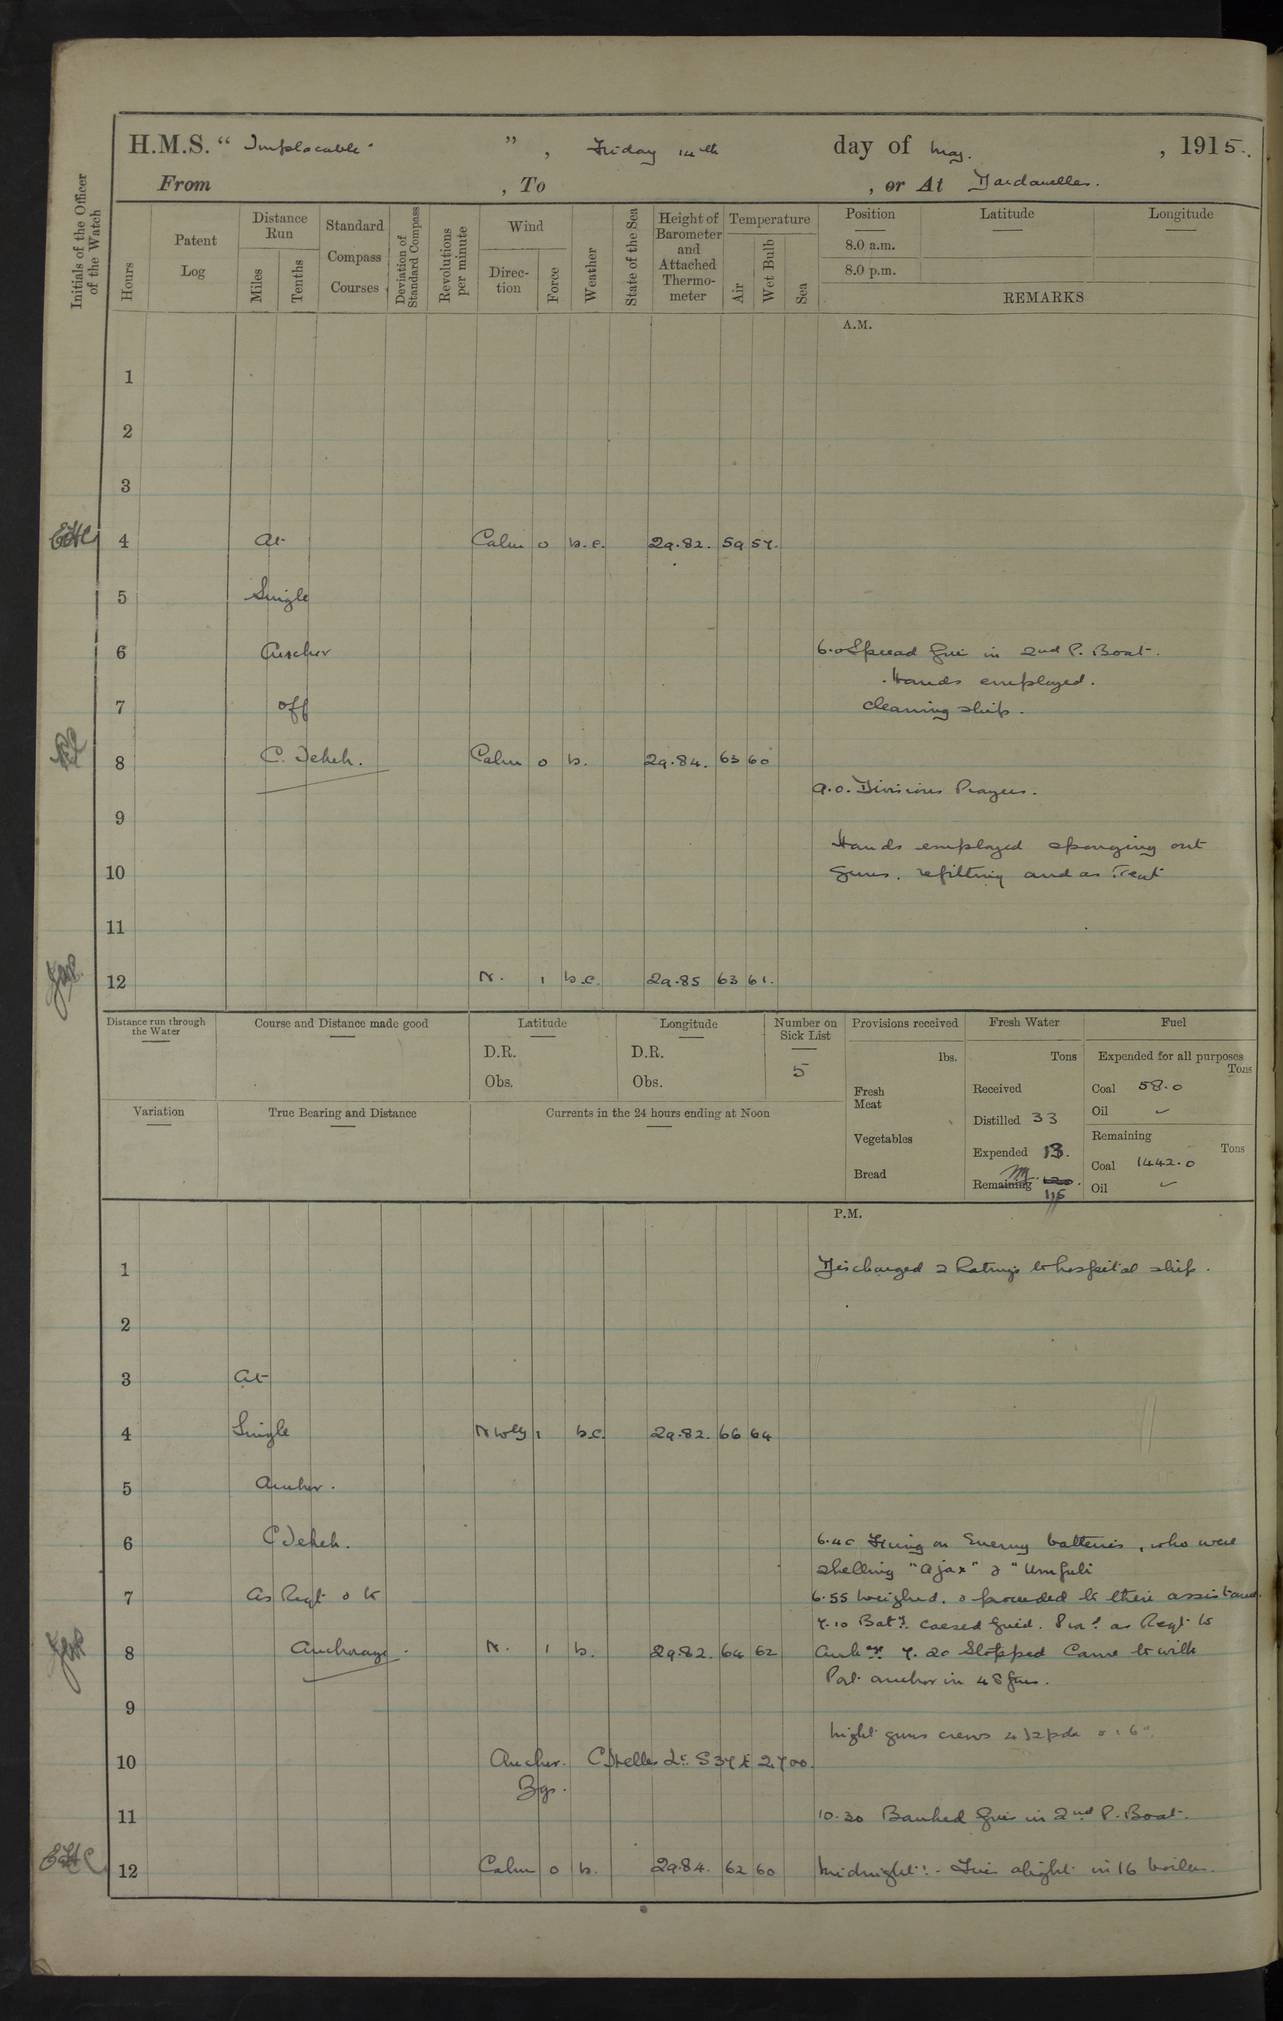 H.M.S. “ Implacable ” , Friday 14th day of May. , 1915.
From , To , or At Dardanelles.
Initials of the Officer of the Watch
Hours
Patent Log
Distance Run
Miles
Tenths
Standard Compass Courses
Deviation of Standard Compass
Revolutions per minute
Wind
Direction
Force
Weather
State of the Sea
Height of Barometer and Attached Thermometer
Temperature
Air
Wet Bulb
Sea
Position Latitude Longitude
8.0 a.m.
8.0 p.m.
REMARKS
A.M.
1
2
3
4 At Calm 0 b.c. 29.82. 59 57.
5 Single
6 Anchor 6.0 Spread fires in 2nd P. Boat.
Hands employed.
7 off cleaning ship.
8 C. Tekeh. Calm 0 b. 29.84. 63 60
9.0. Divisions Prayers.
9
Hands employed sponging out
10 guns. refitting and as reqt
11
12 N. 1 b.c. 29.85 63 61.
Distance run through the Water
Course and Distance made good
Latitude
D.R.
Obs.
Longitude
D.R.
Obs.
Number on Sick List
5
Provisions received
lbs.
Fresh Meat
Vegetables
Bread
Fresh Water
Tons
Received
Distilled 33
Expended 13.
Remaining 120.
115
Fuel
Expended for all purposes
Tons
Coal 58.0
Oil ✓
Remaining
Tons
Coal 1442.0
Oil ✓
Variation
True Bearing and Distance
Currents in the 24 hours ending at Noon
P.M.
1 Discharged 2 Ratings to hospital ship.
2
3 At
4 Single NWly 1 b.c. 29.82. 66 64
5 Anchor.
6 C Tekeh. 6.40 Firing on Enemy batteries, who were
shelling "Ajax" & "Umfuli
7 As Reqt & to 6.55 Weighed. & proceeded to their assistance.
7.10 Baty. ceased firing. Proc. as Reqt to
8 Anchorage. N. 1 b. 29.82. 64 62 Anch. 7.20 Stopped Came to with
Port anchor in 48 fms.
9
Night guns crews 4 12pdr & 1 6"
10 Anchor. C Helles Lt. S37E 2,700.
Bgs.
11 10.30 Banked fires in 2nd P. Boat.
12 Calm 0 b. 29.84. 62 60 Midnight:- Fires alight in 16 boilers.